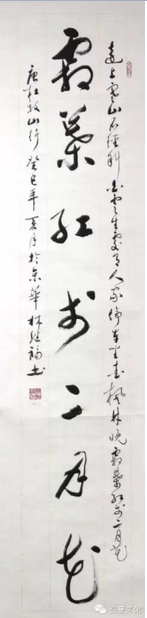 遠上寒山石徑斜白雲生處有人家停車坐愛楓林晚霜葉紅於二月花
霜葉紅於二月花
唐杜牧山行癸巳年夏月於京華林
文化